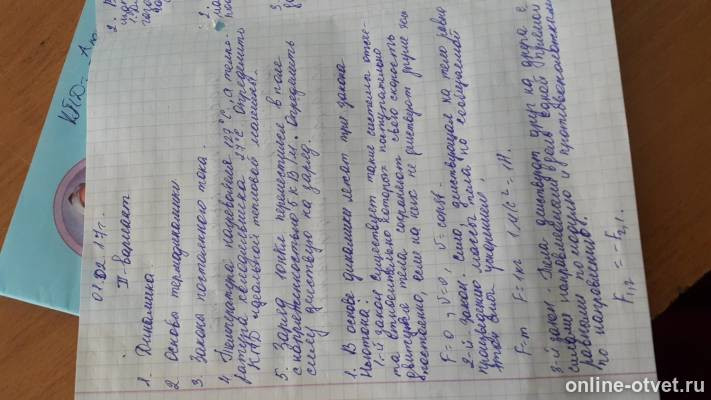 01.02.17г.
II-Вариант
1. Динамика.
2 Основы термодинамики
3. Закона постоянного тока.
4. Температура нагревателя 127°С, а темпе-
ратура холодильника 27°С Определить
КПД идеальной тепловой машины.
5. Заряд поместили в поле
с напряженностью Определить
силу действующую на заряд.
1. В основе динамики лежат три закона
Ньютона.
1-й закон существуют такие системы отсче-
та, относительно которых поступательно
движущиеся тела сохраняют свою скорость
постоянно, если на них не действуют другие
F=0, υ=0, υ=const.
2-й закон сила, действующая на тело равна
произведению массы тела на сообщаемой
этой силой ускорению,
F=m F=1кг 1м/с²=1Н.
3-й закон. Тела действуют друг на друга с
силами направленными вдоль одной прямой
равными по модулю и противоположными
по направлению.
F1,2 = -F2,1.
2.
КПД-
2.
3.
online-otvet.ru